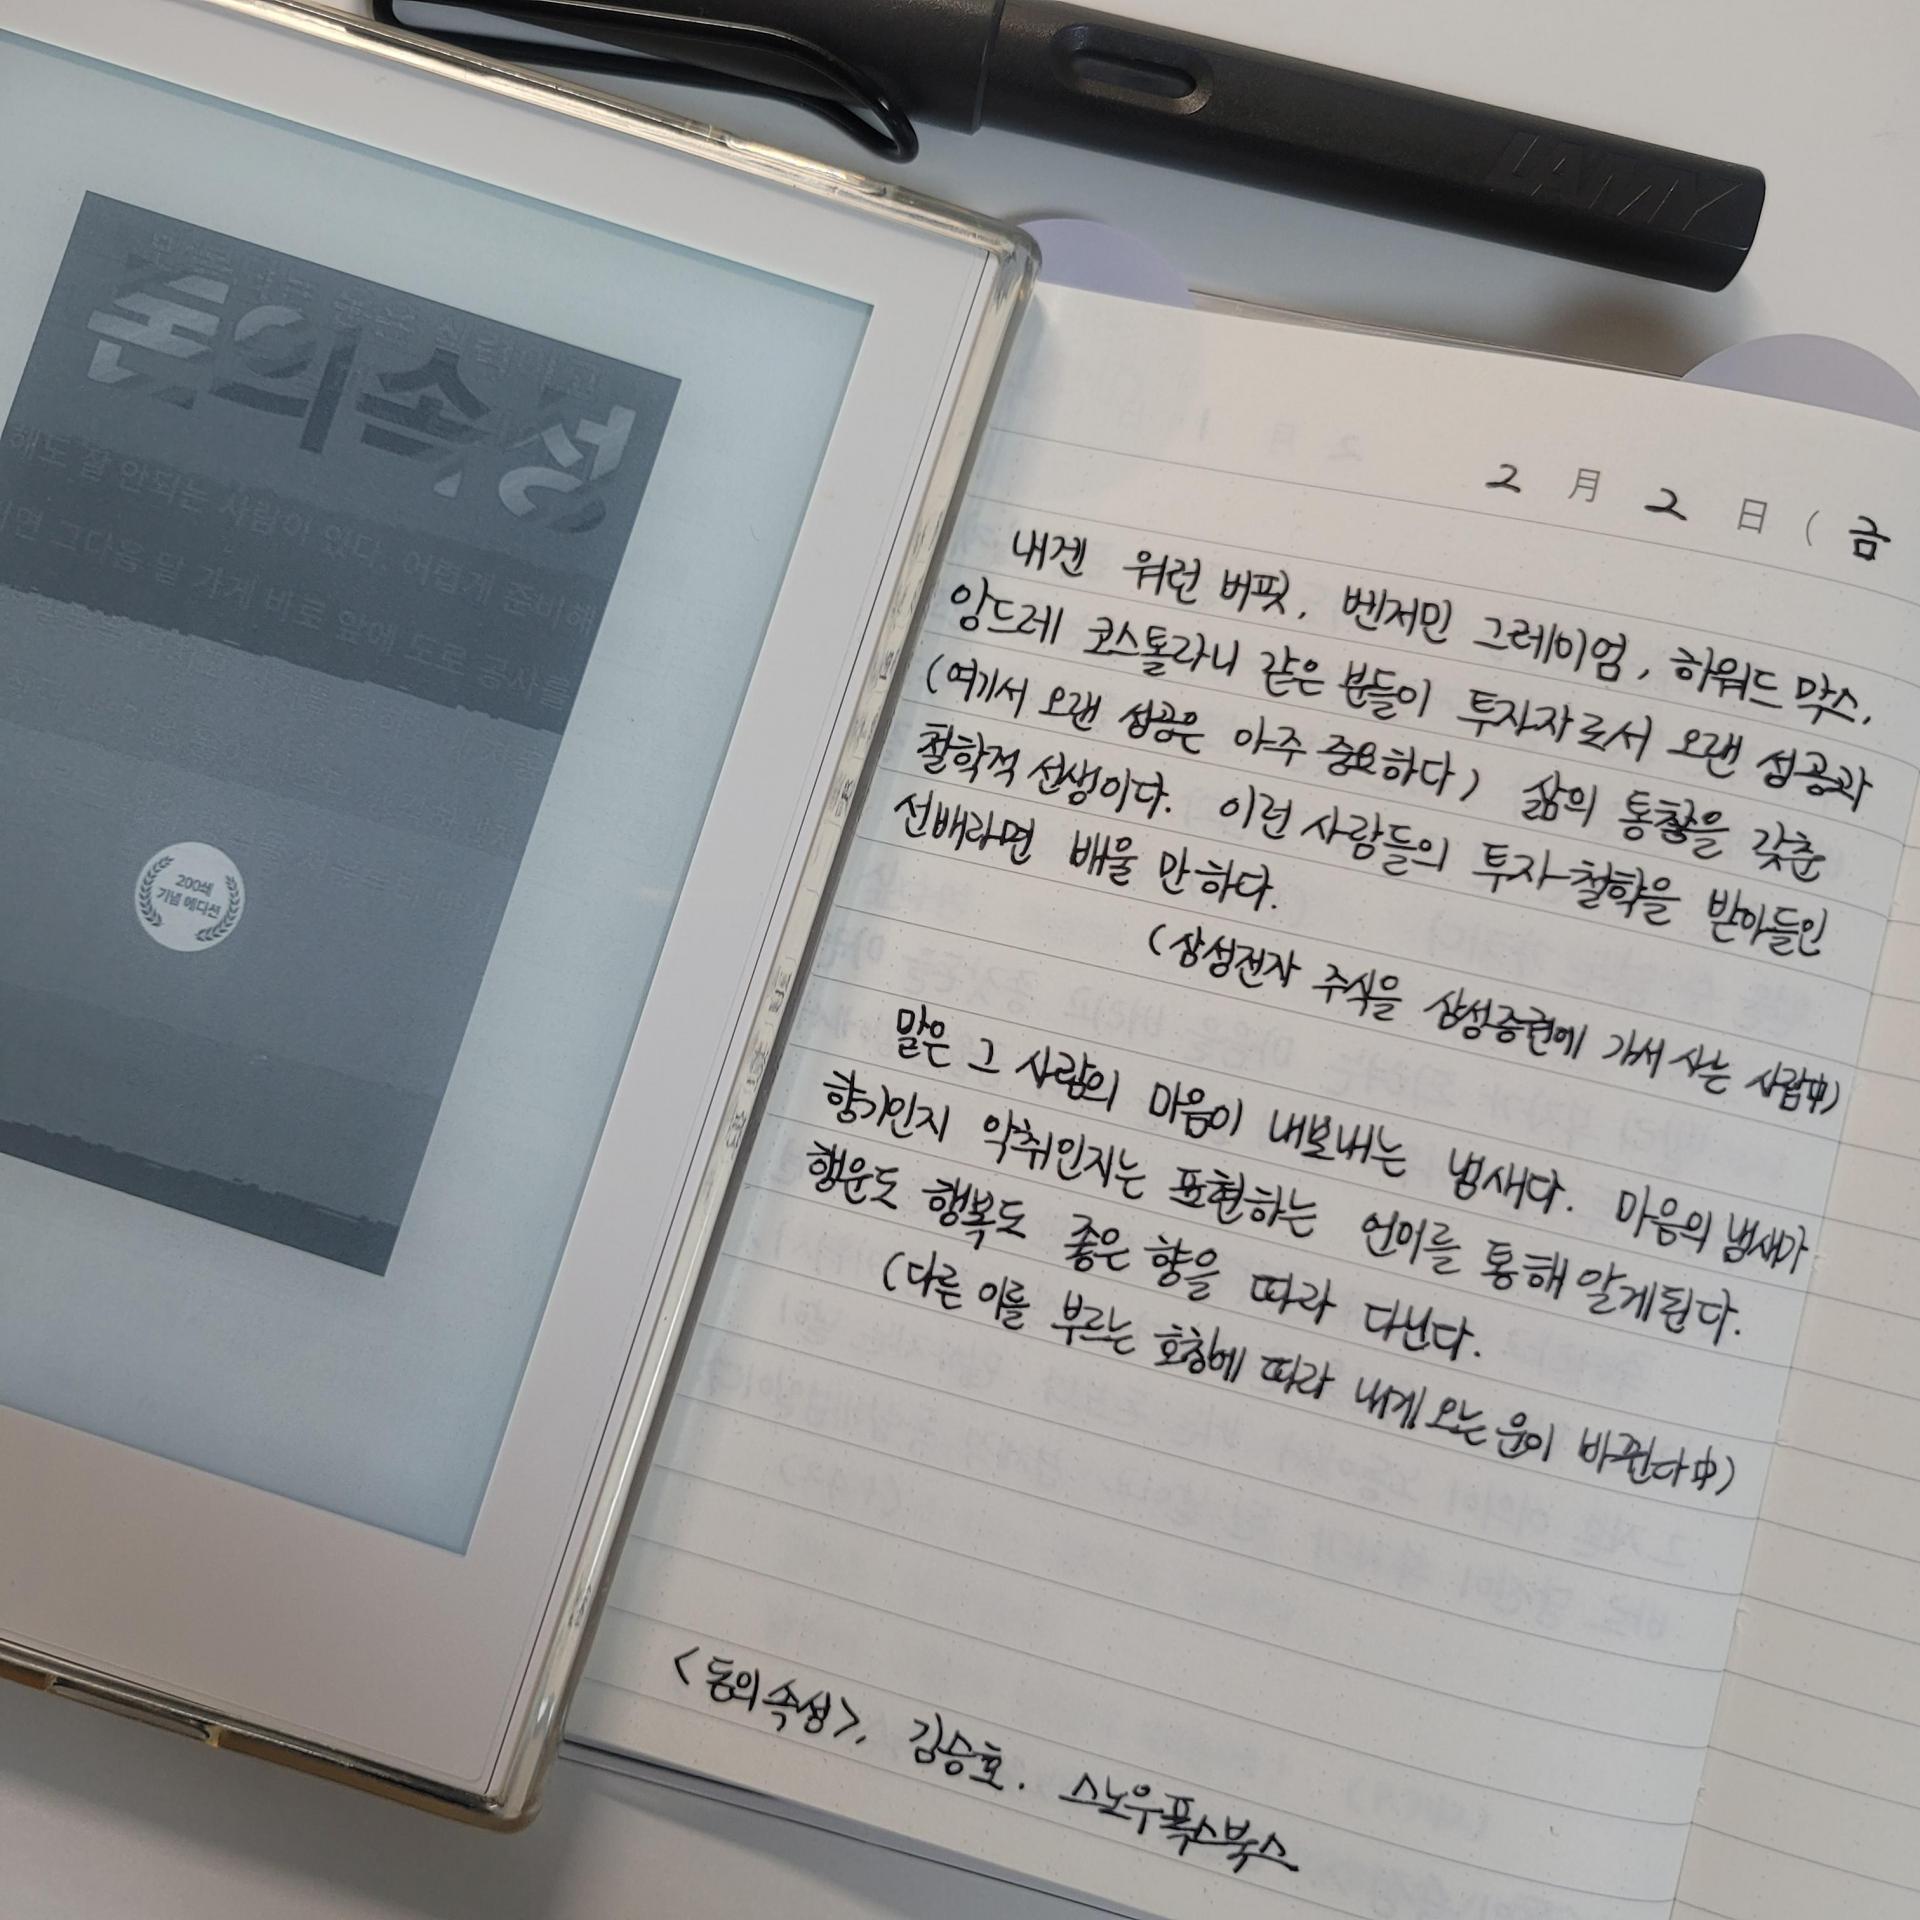 LAMY
돈의 속성
해도 잘 안되는 사람이 있다. 어렵게 준비해
그다음 달 가게 바로 앞에 도로 공사를
200쇄
기념 에디션
2 月 2 日 ( 금
내겐 워런 버핏, 벤저민 그레이엄, 하워드 막스,
앙드레 코스톨라니 같은 분들이 투자자로서 오랜 성공과
(여기서 오랜 성공은 아주 중요하다) 삶의 통찰을 갖춘
철학적 선생이다. 이런 사람들의 투자 철학을 받아들인
선배라면 배울 만하다.
(삼성전자 주식을 삼성증권에 가서 사는 사람 中)
말은 그 사람의 마음이 내보내는 냄새다. 마음의 냄새가
향기인지 악취인지는 표현하는 언어를 통해 알게된다.
행운도 행복도 좋은 향을 따라 다닌다.
(다른 이를 부르는 호칭에 따라 내게 오는 운이 바뀐다 中)
<돈의 속성>, 김승호. 스노우폭스북스